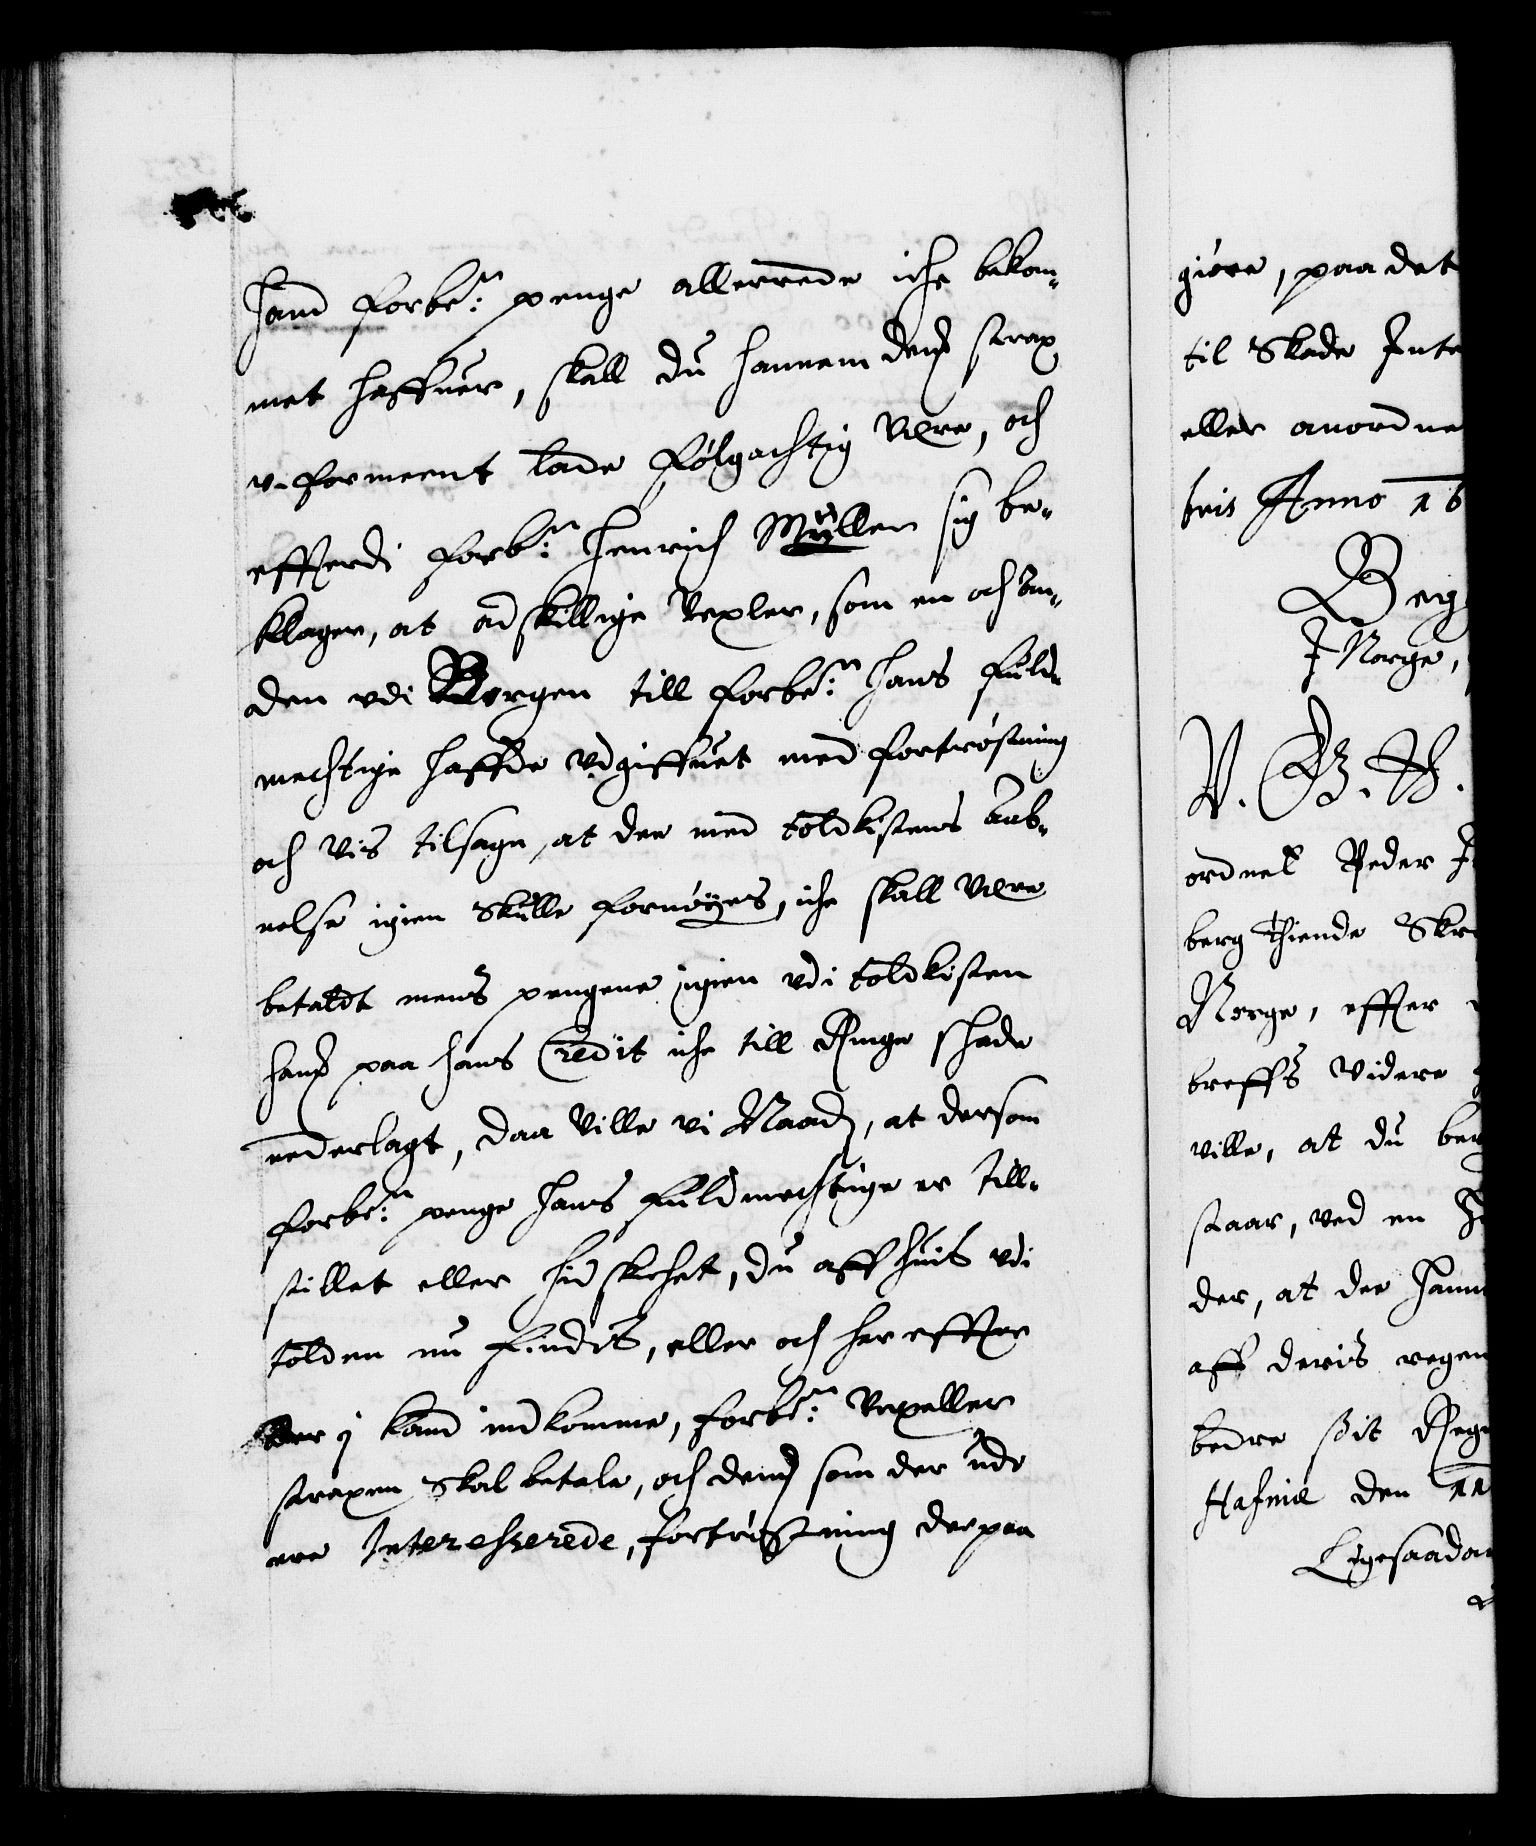 hand forbe:te penge allerrede iche bekom-
met haffuer, skall du hannem dem strax
u-formeent lade følgachtig være, och
effterdi forb:te Henrich Müller sig be-
klager, at adskillige Vexler, som en och an-
den udi Bergen till forbe:te hans fuld-
mechtige haffde udgiffuet med fortrøstning
och vis tilsagn, at der med toldkistens aab-
nelse igien skulle fornøyes, iche skall være
betaldt mens pengene igien udi toldkisten
hans paa hans Credit iche till Ringe schade
nederlagt, daa ville vi Naad:, at dersom
forbe:te penge hans fuldmechtige er till-
stillet eller hid skichet, du aff huis udi
tolden nu findis, eller och her effter
der i kand indkomme, forbe:te Vexeller
straxen skal betale, och dem som der udi
ere Interesserede, fortrøstning der paa
giøre, paa det
til Skade Inte
eller anordne
bris Anno 16
Berg
I Norge,
V. G. T.
ordnet Peder J
berg Thiende Skr
Norge, effter
breffs videre
ville, at du be
staar, ved en
der, at der hann
aff deris regen
bedre sit Regn
Hafniæ den 11
Ligesaadan